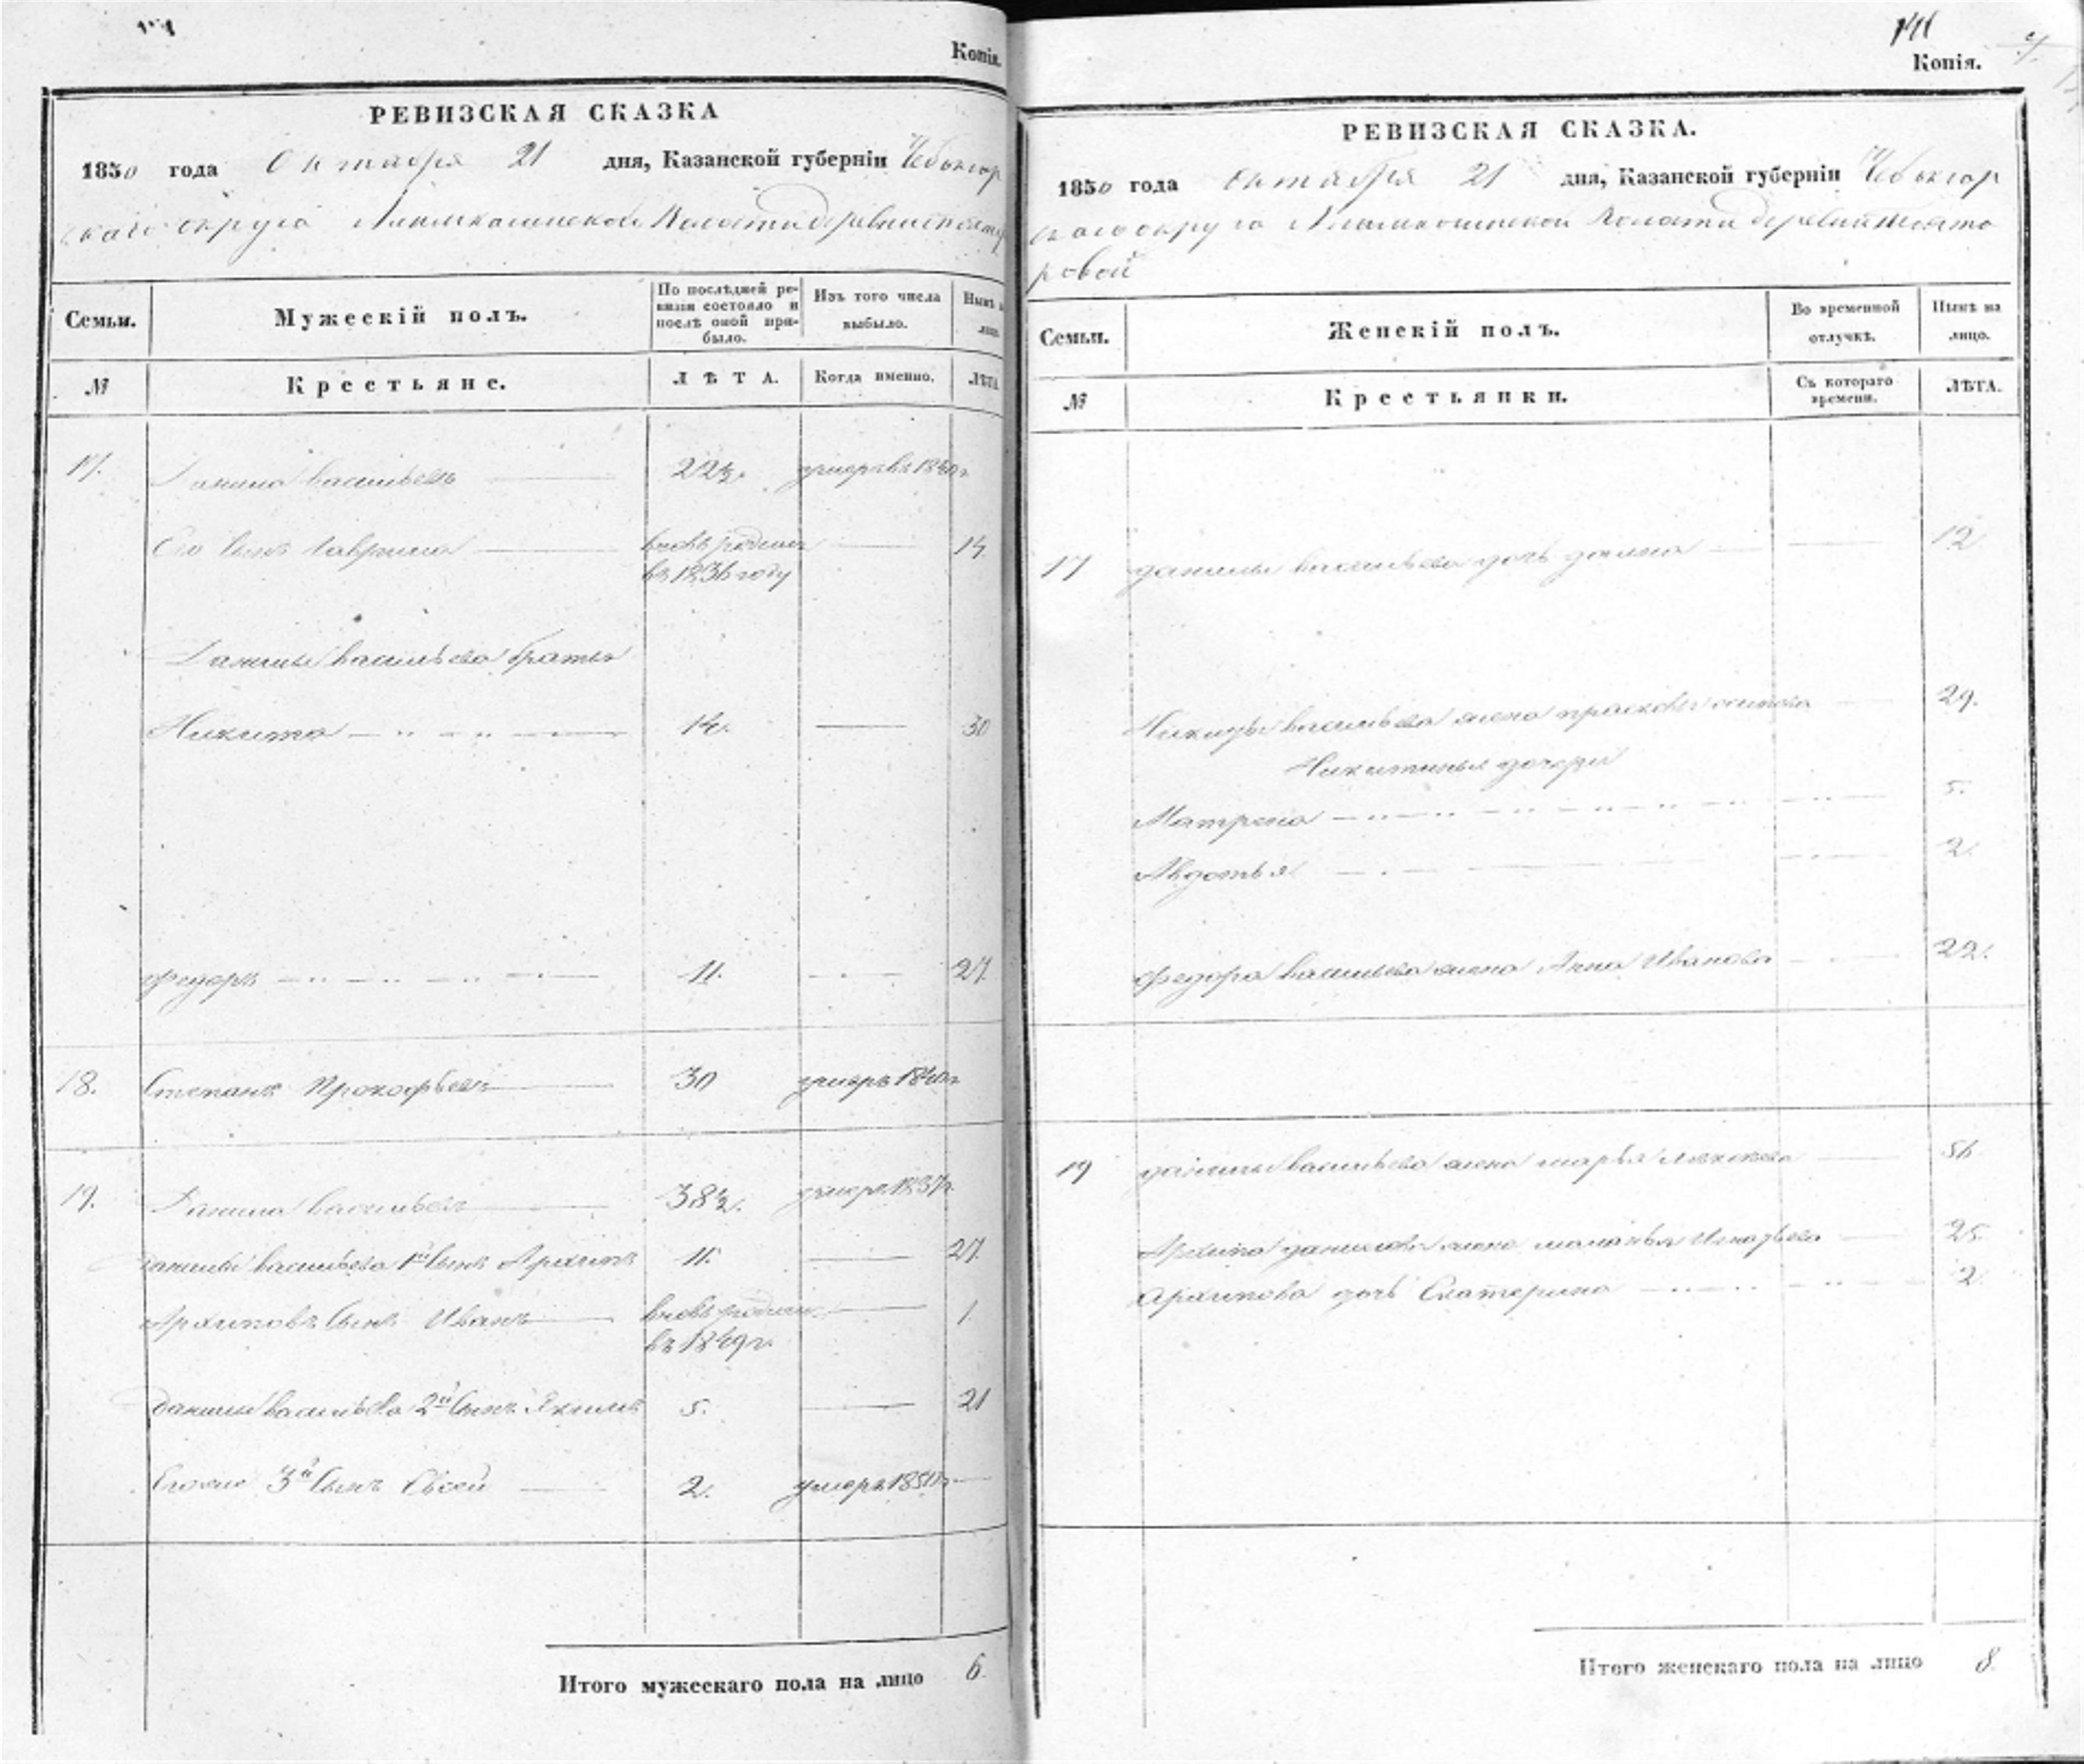 Копія.
РЕВИЗСКАЯ СКАЗКА
1850 года Октября 21 дня, Казанской губерніи Чебоксар
скаго округа Волости деревни
Семьи.
Мужескій полъ.
По послѣдней ре-
визіи состояло и
послѣ оной при-
было.
Изъ того числа
выбыло.
Нынѣ на
лицо.
№
Крестьяне.
ЛѢТА.
Когда именно.
ЛѢТА.
17. Данила Васильевъ 22½. умеръ въ 1840 г
Его сынъ Гаврила вновь рожден 14
въ 1836 году
Данилы Васильева братья
Никита 14. 30
Федоръ 11. 27.
18. Степанъ Прокофьевъ 30 умеръ 1840 г
19. Данила Васильевъ 38½. умеръ 1837 г.
Данилы Васильева 1й сынъ Архипъ 11. 27.
Архиповъ сынъ Иванъ вновь рожден 1.
въ 1849 г.
Данилы Васильева 2й сынъ Якимъ 5. 21
Его же 3й сынъ 2. умеръ 1850 г
Итого мужескаго пола на лицо 6.
141
Копія.
РЕВИЗСКАЯ СКАЗКА.
1850 года Октября 21 дня, Казанской губерніи Чебоксар
скаго округа Волости деревни
ровой
Семьи.
Женскій полъ.
Во временной
отлучкѣ.
Нынѣ на
лицо.
№
Крестьянки.
Съ котораго
времени.
ЛѢТА.
17 Данилы Васильева дочь 12
Никиты Васильева жена Прасковья Осипова 29.
Никитины дочери
Матрена 5.
Авдотья 2.
Федора Васильева жена Анна Иванова 22.
19 Данилы Васильева жена Марья 56
Архипа Данилова жена Маланья Игнатьева 25.
Архипова дочь Екатерина 2.
Итого женскаго пола на лицо 8.